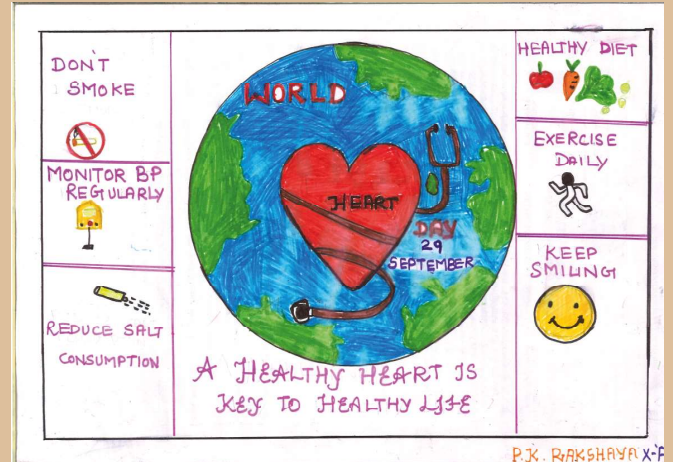 DON'T
SMOKE
MONITOR BP
REGULARLY
REDUCE SALT
CONSUMPTION
WORLD
HEART
DAY
29
SEPTEMBER
A HEALTHY HEART IS
KEY TO HEALTHY LIFE
HEALTHY DIET
EXERCISE
DAILY
KEEP
SMILING
P.K. RAKSHAYA X-A